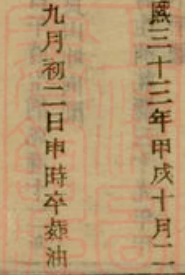 熙三十三年甲戌十月二
九月初二日申時卒葬油